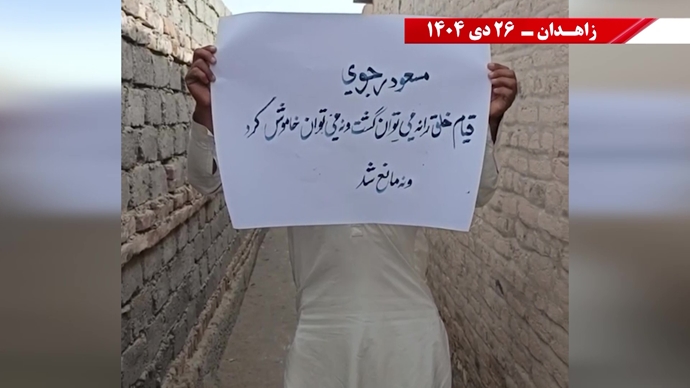 زاهدان – ۲۶ دی ۱۴۰۴
مسعود رجوی
قیام خلق را نه می توان کشت و نه می توان خاموش کرد
و نه مانع شد